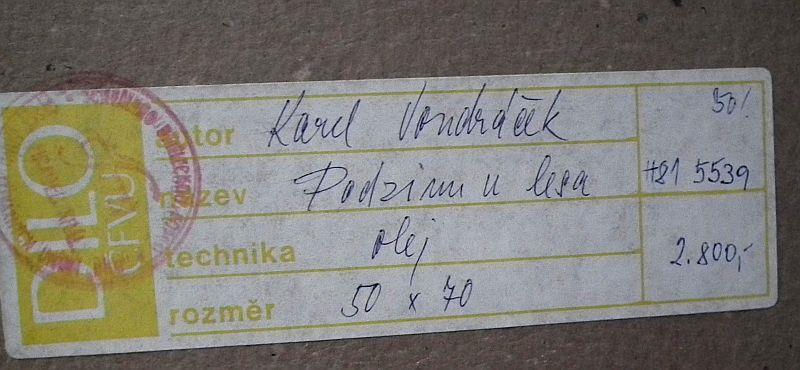 DÍLO
ČFVU
autor Karel Vondráček 50/
název Podzim u lesa H81 5539
technika olej 2.800,-
rozměr 50 x 70